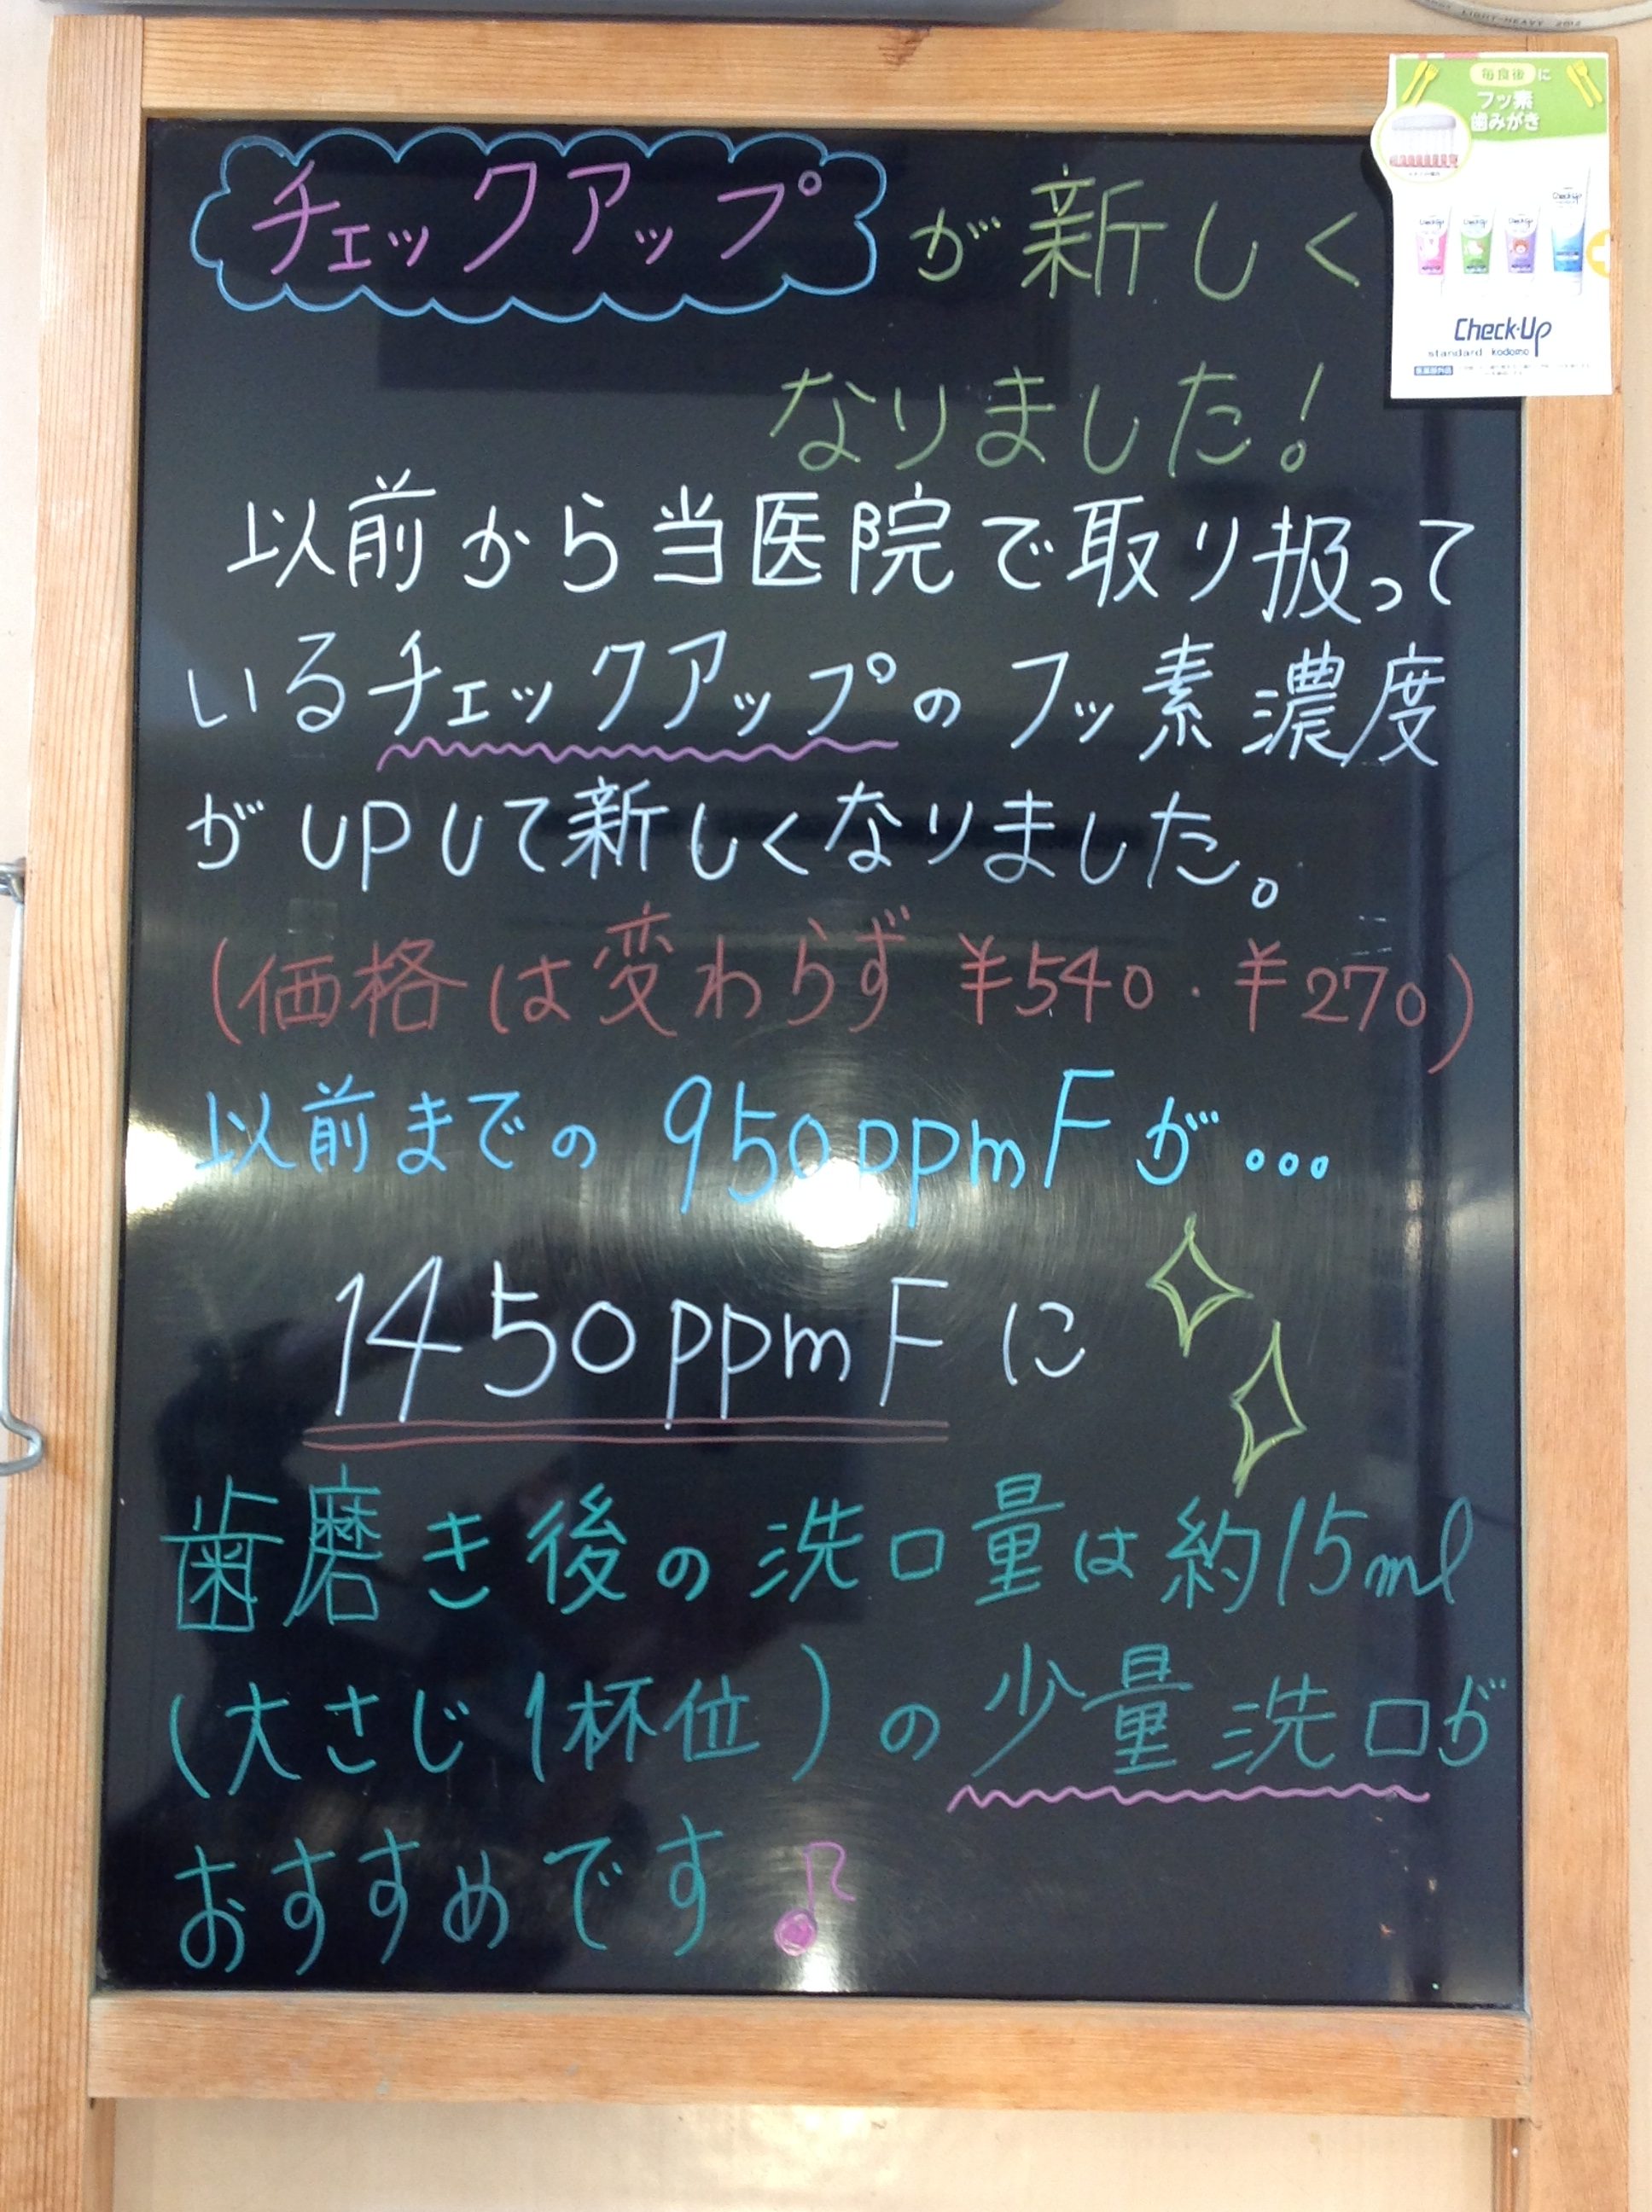 LIGHT-HEAVY 2012
毎食後に
フッ素
歯みがき
Check-Up
standard kodomo
医薬部外品
チェックアップが新しく
なりました!
以前から当医院で取り扱って
いるチェックアップのフッ素濃度
がUPして新しくなりました。
(価格は変わらず ¥540・¥270)
以前までの 950ppmFが...
1450ppmFに
歯磨き後の洗口量は約15ml
(大さじ1杯位)の少量洗口が
おすすめです♪